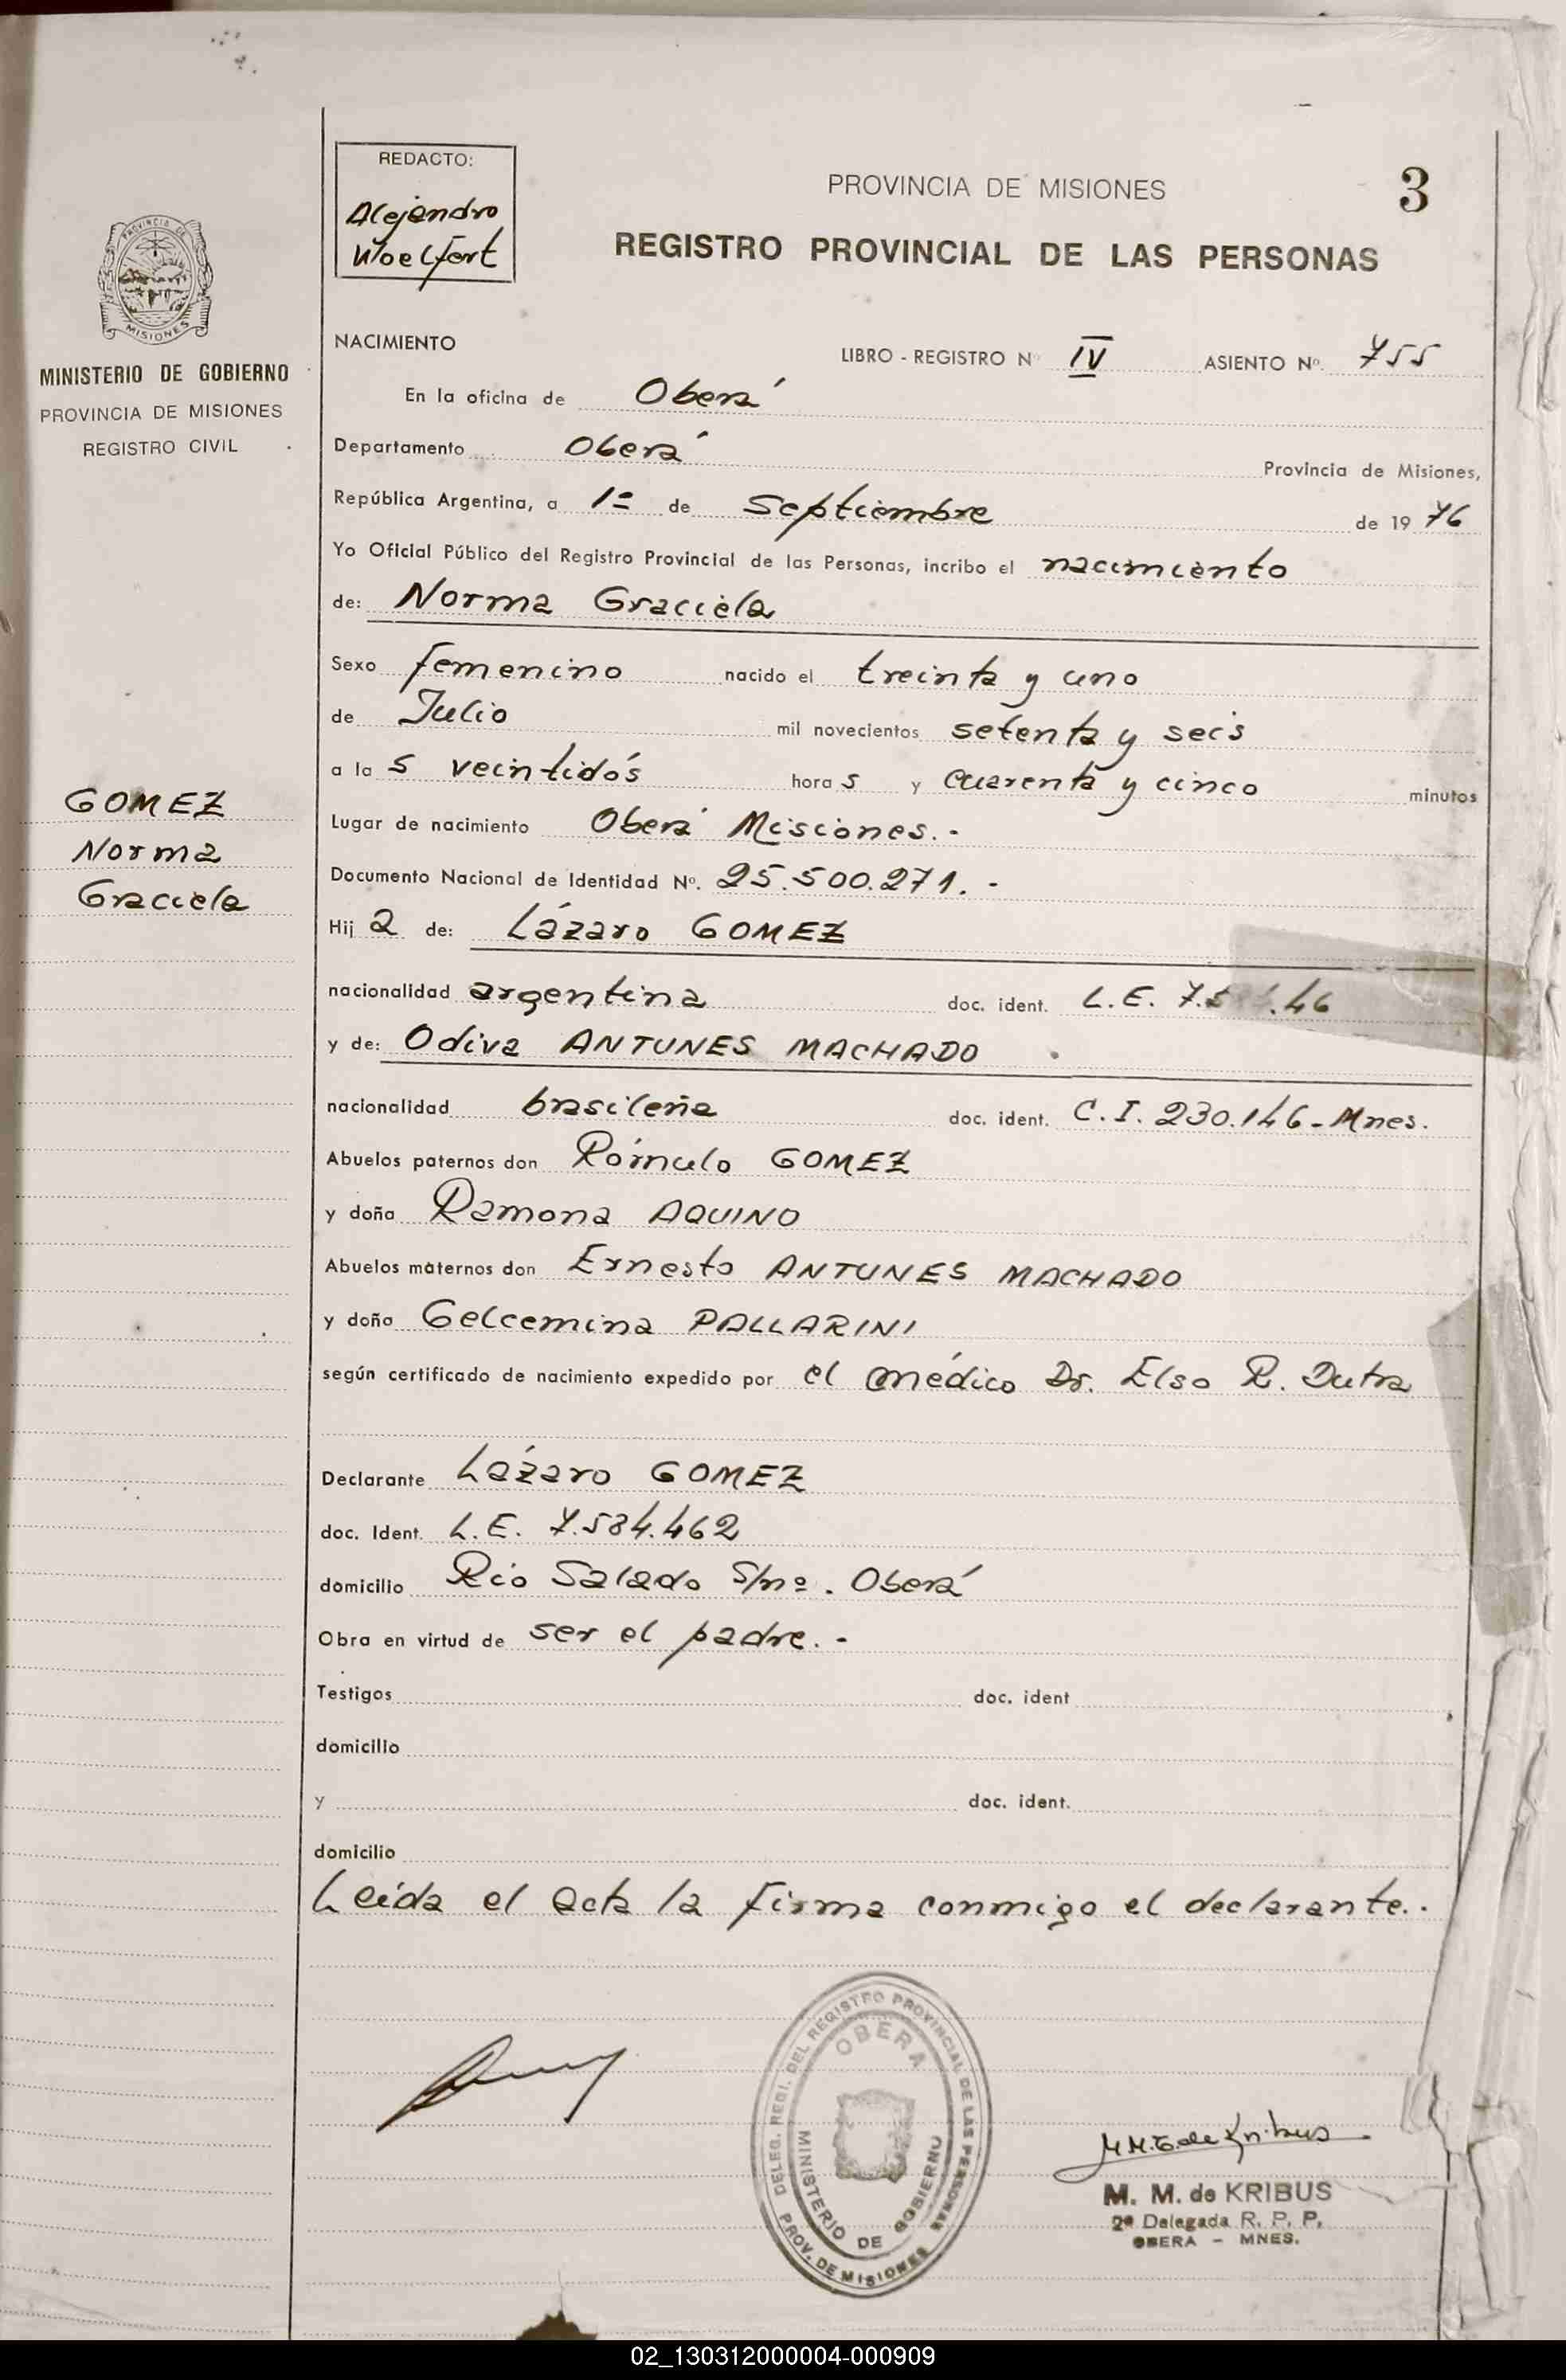 REDACTO:
Alejandro
Woelfert
PROVINCIA DE MISIONES
3
REGISTRO PROVINCIAL DE LAS PERSONAS
PROVINCIA DE
MISIONES
MINISTERIO DE GOBIERNO
PROVINCIA DE MISIONES
REGISTRO CIVIL
NACIMIENTO
LIBRO - REGISTRO Nº IV ASIENTO Nº. 755
En la oficina de Oberá
Departamento Oberá Provincia de Misiones,
República Argentina, a 1º de Septiembre de 1976
Yo Oficial Público del Registro Provincial de las Personas, incribo el nacimiento
de: Norma Graciela
Sexo femenino nacido el treinta y uno
de Julio mil novecientos setenta y seis
a las veintidós horas y cuarenta y cinco minutos
GOMEZ
Norma
Graciela
Lugar de nacimiento Oberá Misiones.-
Documento Nacional de Identidad Nº. 25.500.271.-
Hija de: Lázaro GOMEZ
nacionalidad argentina doc. ident. L.E.
y de: Odiva ANTUNES MACHADO
nacionalidad brasileña doc. ident. C.I. 230.146-Mnes.
Abuelos paternos don Rómulo GOMEZ
y doña Ramona AQUINO
Abuelos maternos don Ernesto ANTUNES MACHADO
y doña Gelcemina PALLARINI
según certificado de nacimiento expedido por el médico Dr. Elso R. Dutra
Declarante Lázaro GOMEZ
doc. Ident. L.E. 7.584.462
domicilio Rio Salado S/nº. Oberá
Obra en virtud de ser el padre.-
Testigos doc. ident
domicilio
y doc. ident.
domicilio
Leída el acta la firma conmigo el declarante..
DELEG. REGI. DEL REGISTRO PROVINCIAL DE LAS PERSONAS
OBERA
MINISTERIO DE GOBIERNO
PROV. DE MISIONES
M.M. de Kribus
M. M. de KRIBUS
2ª Delegada R. P. P.
OBERA - MNES.
02_130312000004-000909